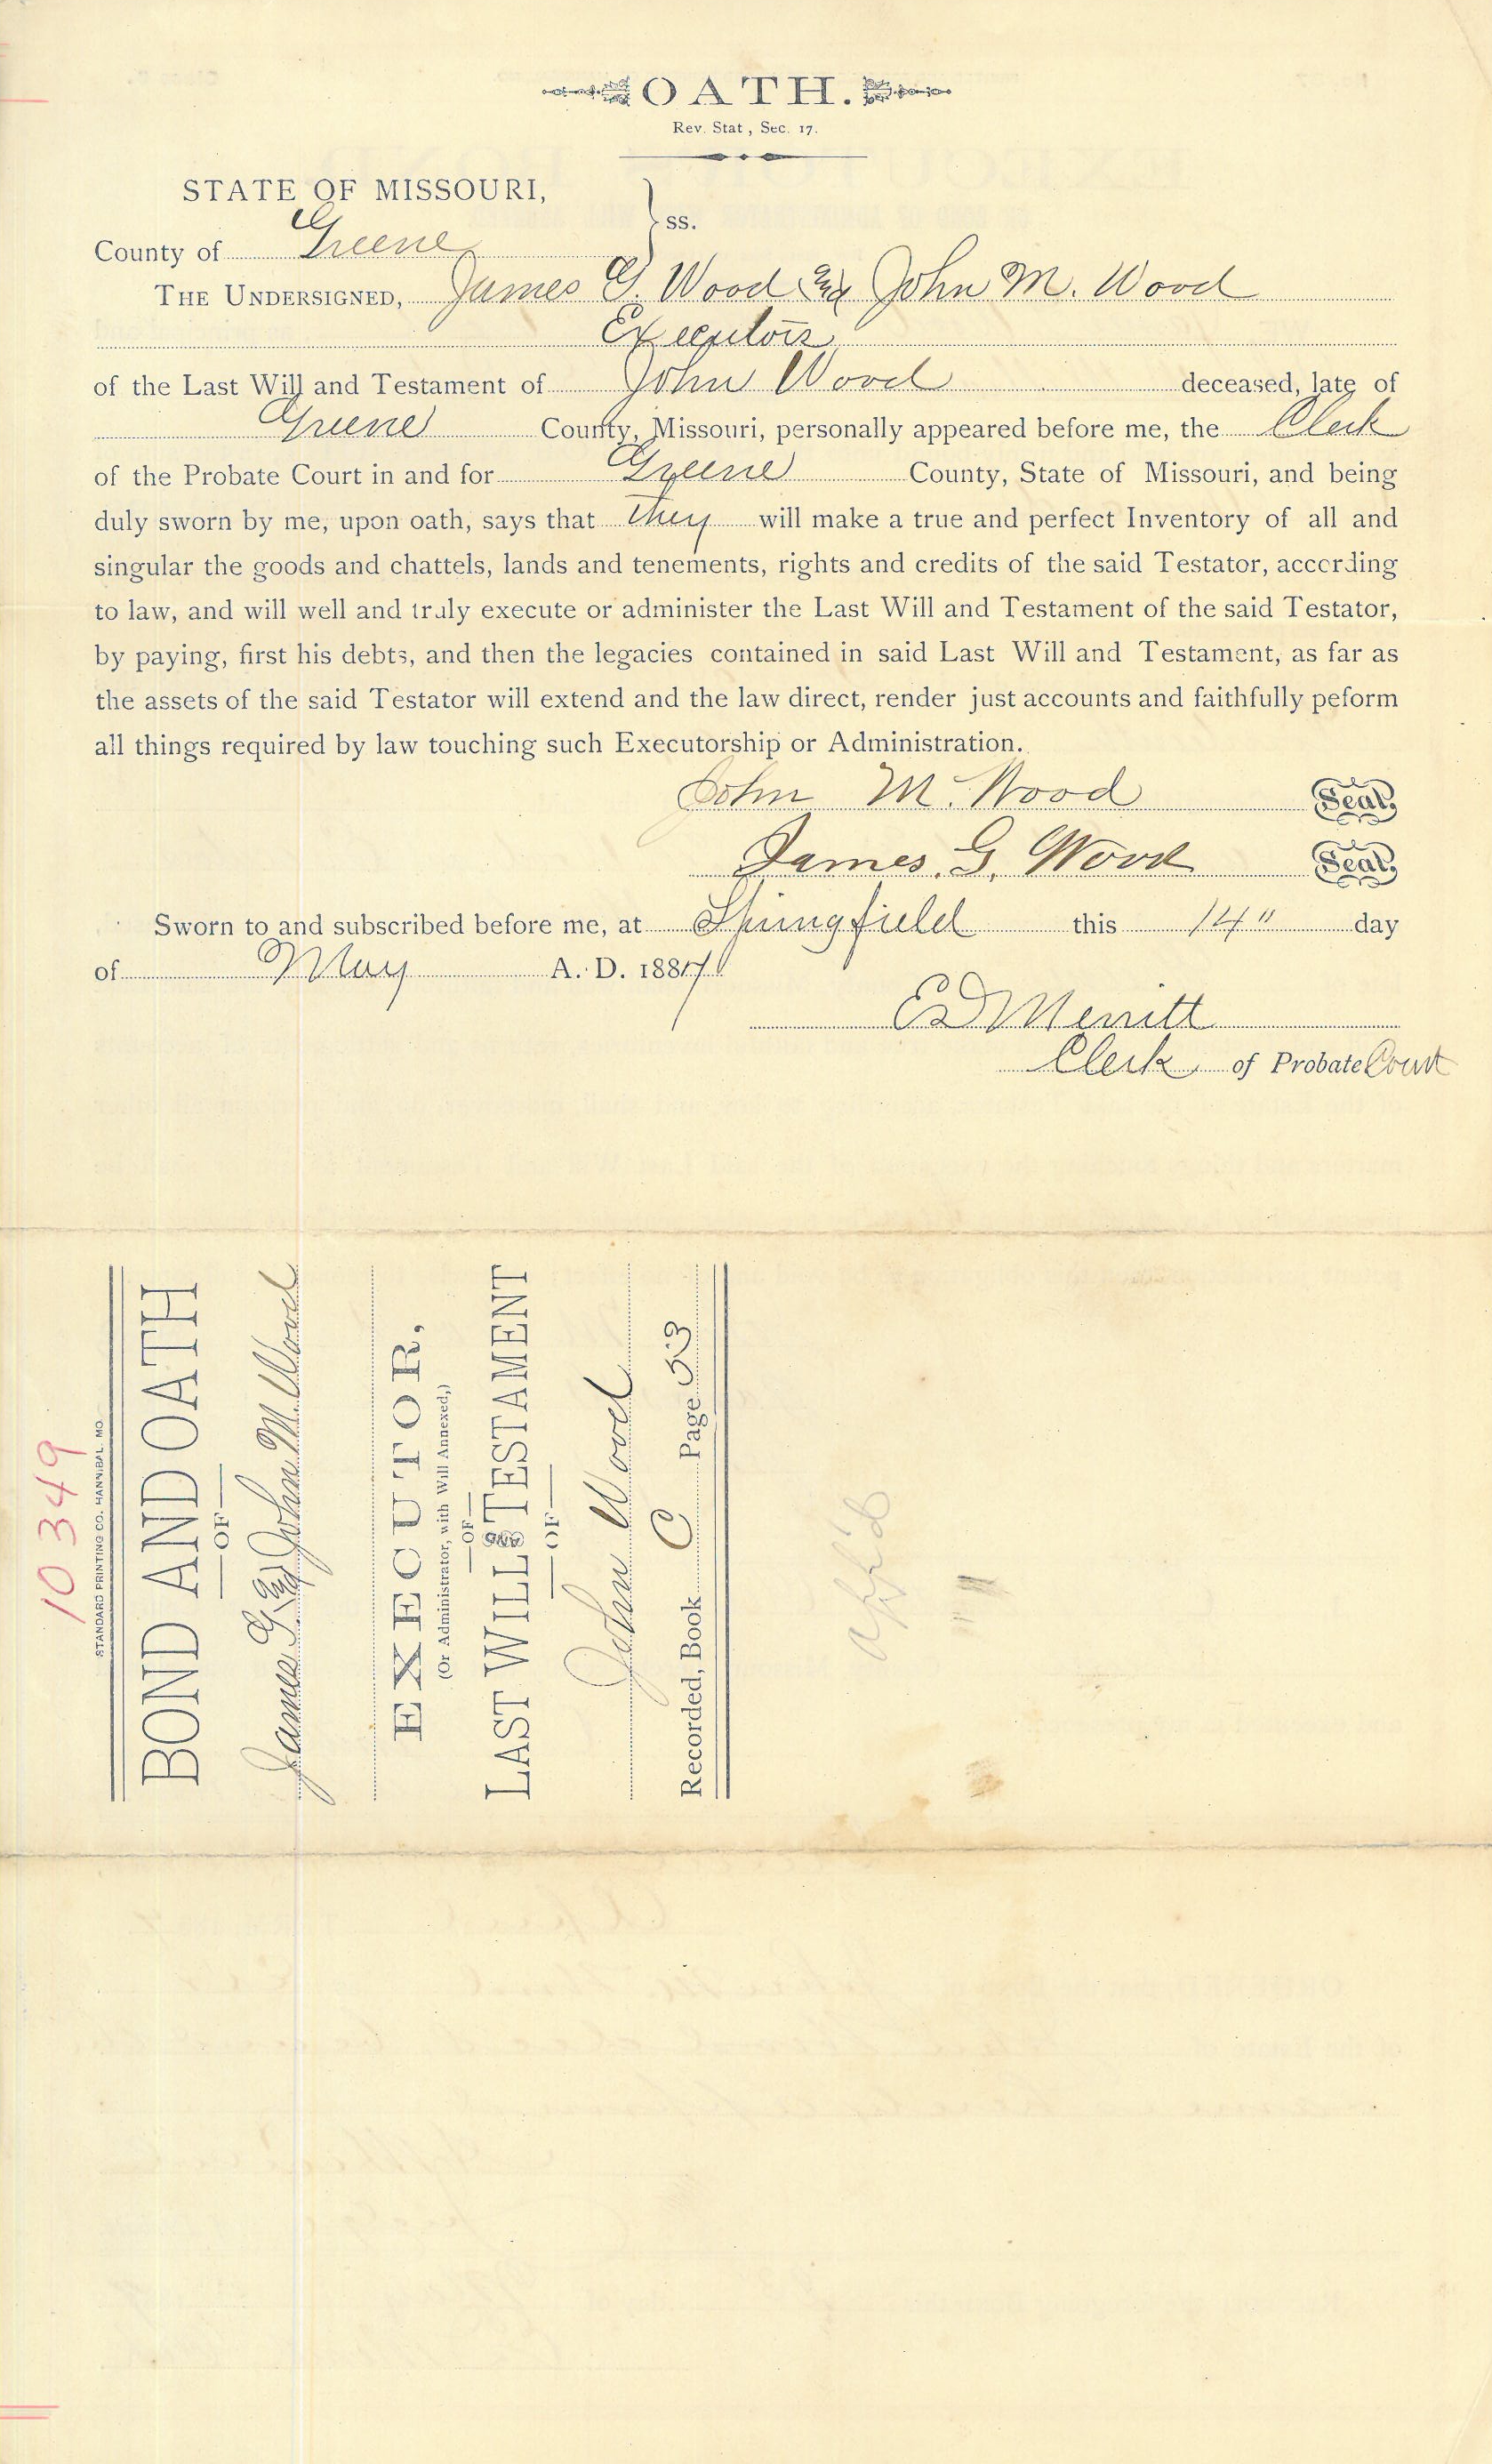 OATH.
Rev. Stat, Sec. 17.
STATE OF MISSOURI,
ss.
County of Greene
THE UNDERSIGNED, James G. Wood and John M. Wood
Executors
of the Last Will and Testament of John Wood deceased, late of
Greene County, Missouri, personally appeared before me, the Clerk
of the Probate Court in and for Greene County, State of Missouri, and being
duly sworn by me, upon oath, says that they will make a true and perfect Inventory of all and
singular the goods and chattels, lands and tenements, rights and credits of the said Testator, according
to law, and will well and truly execute or administer the Last Will and Testament of the said Testator,
by paying, first his debts, and then the legacies contained in said Last Will and Testament, as far as
the assets of the said Testator will extend and the law direct, render just accounts and faithfully peform
all things required by law touching such Executorship or Administration.
John M. Wood Seal
James. G. Wood Seal
Sworn to and subscribed before me, at Springfield this 14" day
of May A. D. 188
ED Merritt
Clerk of Probate Court
10349
STANDARD PRINTING CO. HANNIBAL. MO.
BOND AND OATH
OF
James G. and John M. Wood
EXECUTOR,
(Or Administrator, with Will Annexed,)
OF
LAST WILL AND TESTAMENT
OF
John Wood
Recorded, Book C Page 53
app'd